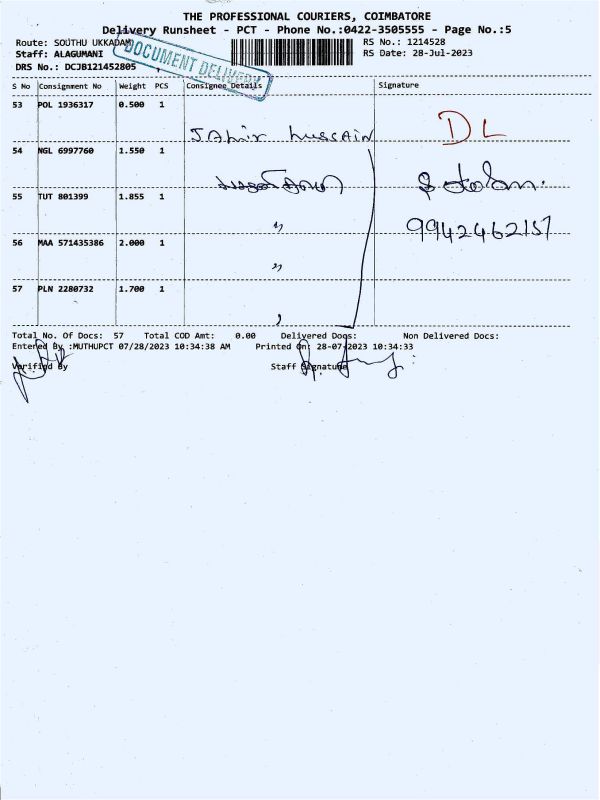 THE PROFESSIONAL COURIERS, COIMBATORE
Delivery Runsheet - PCT - Phone No.:0422-3505555 - Page No.:5
Route: SOUTHU UKKADAM
RS No.: 1214528
Staff: ALAGUMANI
RS Date: 28-Jul-2023
DRS No.: DCJB121452805
DOCUMENT DELIVERY
S No Consignment No Weight PCS Consignee Details Signature
53 POL 1936317 0.500 1
JAhir hussAin DL
54 NGL 6997760 1.550 1
55 TUT 801399 1.855 1
9942462157
56 MAA 571435386 2.000 1
57 PLN 2280732 1.700 1
Total No. Of Docs: 57 Total COD Amt: 0.00 Delivered Docs: Non Delivered Docs:
Entered By :MUTHUPCT 07/28/2023 10:34:38 AM Printed On: 28-07-2023 10:34:33
Verified By Staff Signature